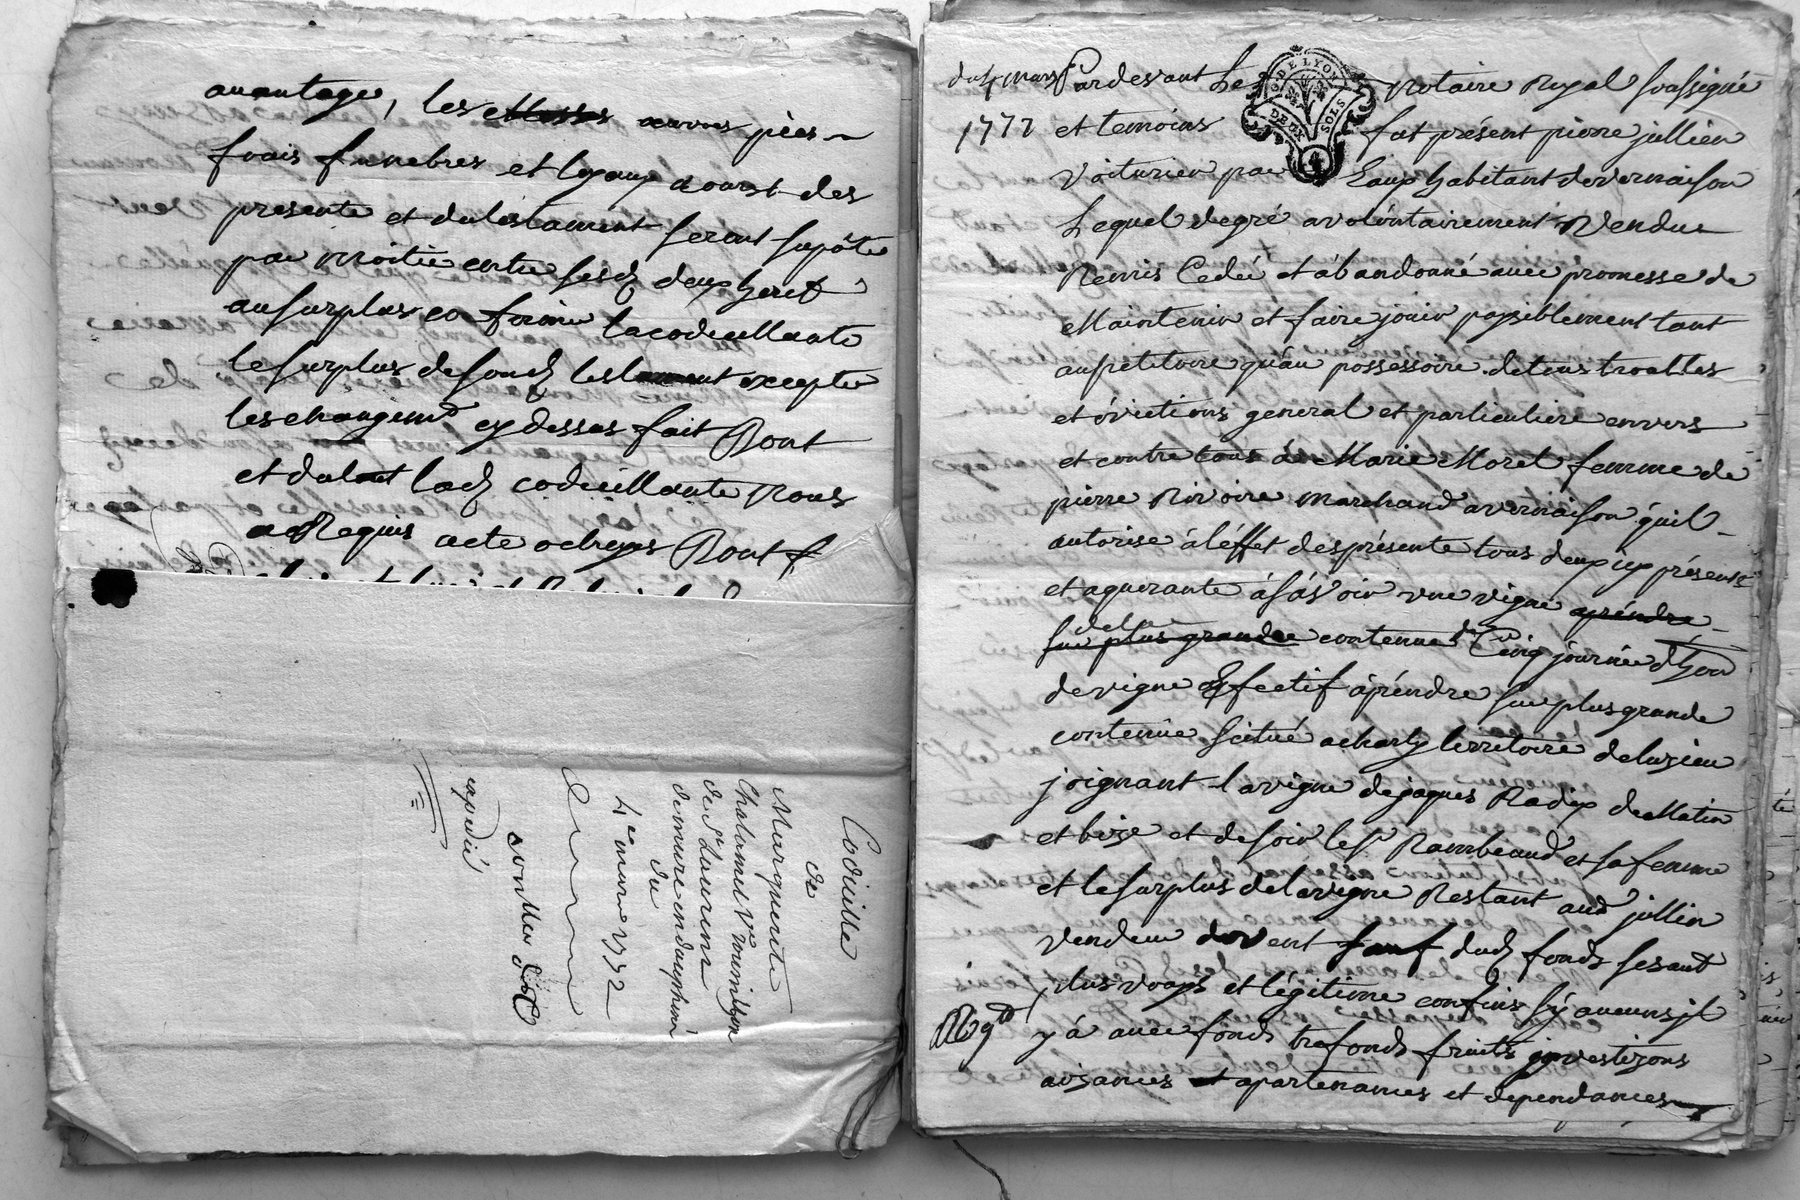 avantage, les messes œuvres pies
frais funebres et loyaux coust des
presente et du testament seront suporté
par moitié entre sesd deux heret
au surplus confirme la codicillante
le surplus de sond testament excepté
les changemt cy dessus fait Dont
et du tout lad codicillante Nous
a Requis acte octroyés Dont f
Codicille
de
Marguerite
Chalamel Ve
de St Laurent
demeure en dauphiné
du
4e mars 1772
expedié
du 4 mars
1772
Pardevant Le Notaire Royal soussigné
G. DE LYON
DEUX SOLS
4
et temoins fut présent pierre jullien
Voiturier par Eaux habitant de vernaison
Lequel de gré a volontairement Vendue
Remis Cedé et abandonné avec promesse de
Maintenir et faire jouir paysiblement tant
au petitoire qu'au possessoire de tous troubles
et évictions general et particuliere envers
et contre tous à Marie Morel femme de
pierre Rivoire marchand a vernaison qu'il
autorise à l'éffet des présente tous deux icy présents
et aquerante à sçavoir une vigne aprendre
de la
sur plus grande contenue de Cinq journée d'hom
de vigne Effectif àpréndre sur plus grande
contenüe scitué a charly territoire de luzieu
joignant la vigne de jaques Radix de Matin
et bize et de soir le sr Rambeaud et sa femme
et le surplus de la vigne Restant aud jullien
Vendeur de vent sauf dud fonds ses autre
plus vrays et légitime confins sy aucuns jl
y à avec fonds trefonds fruits jnvestizons
aizances et apartenances et dependances